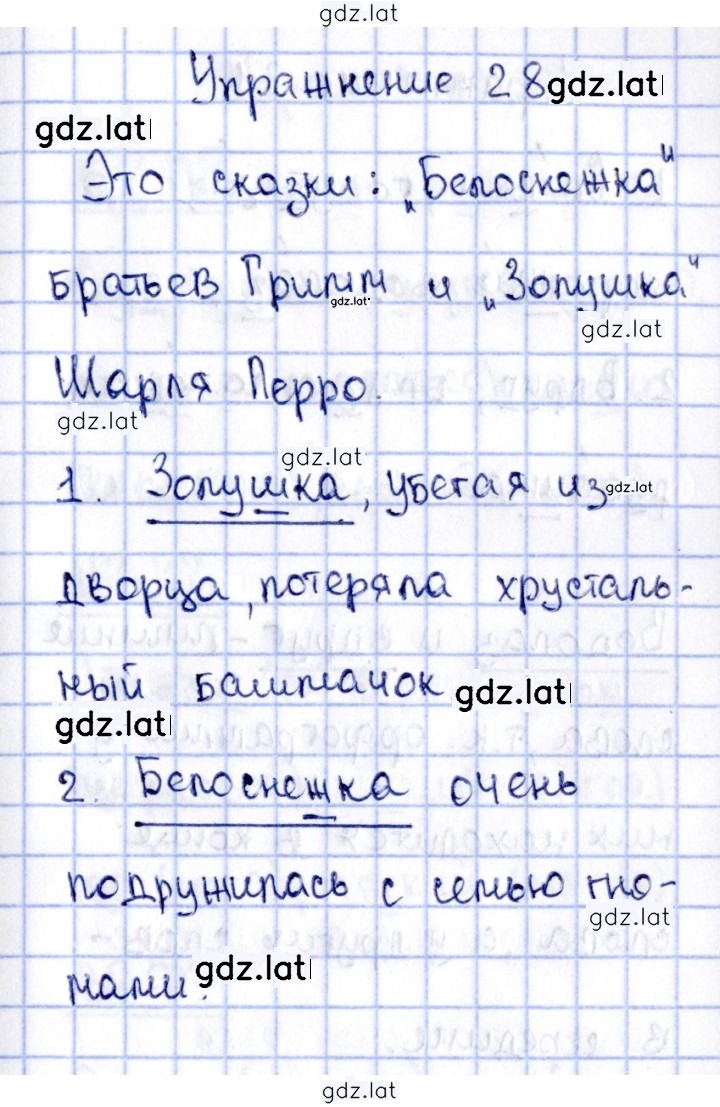 gdz.lat
Упражнение 28 gdz.lat
gdz.lat
Это сказки: „Белоснежка"
братьев Гримм и „Золушка"
gdz.lat
gdz.lat
Шарля Перро.
gdz.lat
gdz.lat
1. Золушка, убегая из gdz.lat
дворца, потеряла хрусталь-
ный башмачок gdz.lat
gdz.lat
2. Белоснежка очень
подружилась с семью гно-
gdz.lat
мами. gdz.lat
gdz.lat